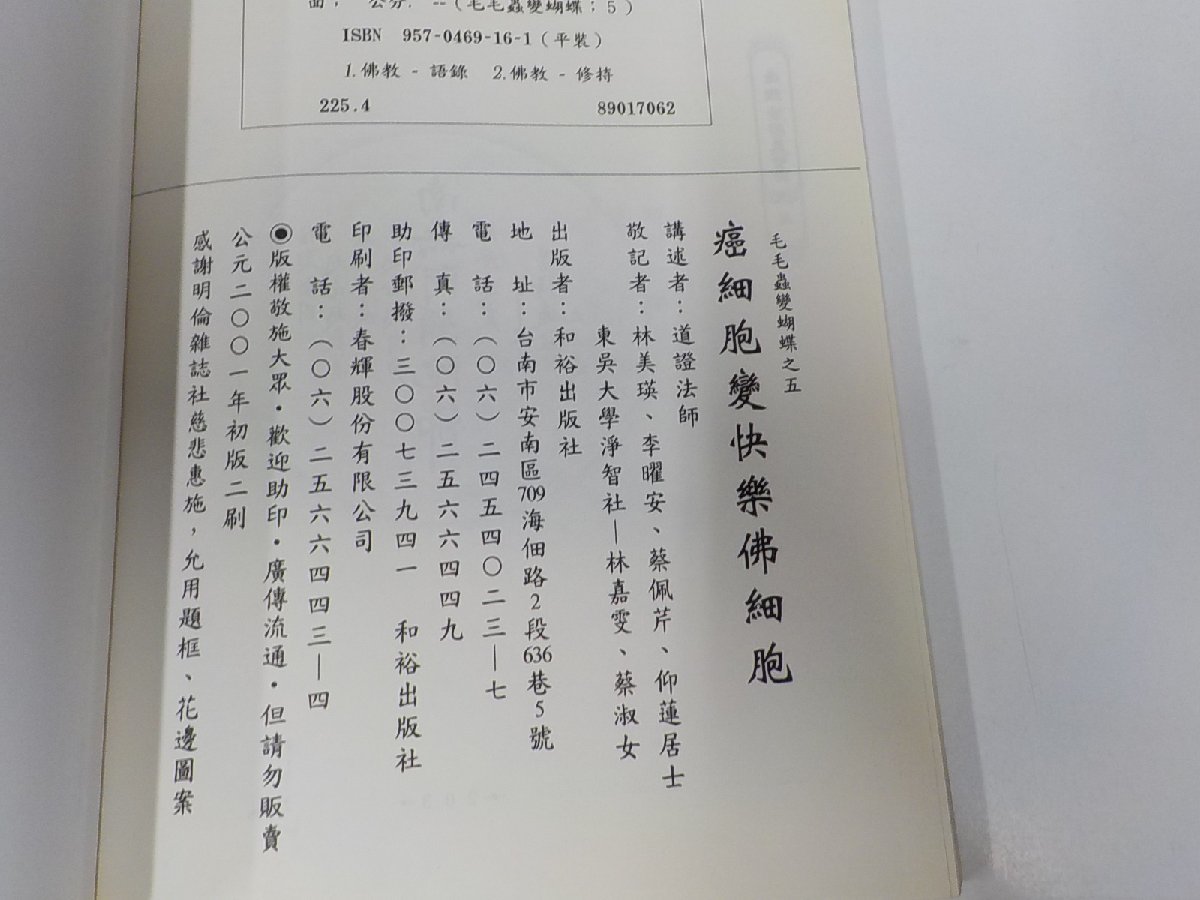 面； 公分. --（毛毛蟲變蝴蝶；5）
ISBN 957-0469-16-1（平裝）
1.佛教 - 語錄 2.佛教 - 修持
225.4 89017062
毛毛蟲變蝴蝶之五
癌細胞變快樂佛細胞
講述者：道證法師
敬記者：林美瑛、李曜安、蔡佩芹、仰蓮居士
東吳大學淨智社—林嘉雯、蔡淑女
出版者：和裕出版社
地 址：台南市安南區709海佃路2段636巷5號
電 話：（〇六）二四五四〇二三—七
傳 真：（〇六）二五六六四四九
助印郵撥：三〇〇七三九四一 和裕出版社
印刷者：春輝股份有限公司
電 話：（〇六）二五六六四四三—四
◉版權敬施大眾・歡迎助印・廣傳流通・但請勿販賣
公元二〇〇一年初版二刷
感謝明倫雜誌社慈悲惠施，允用題框、花邊圖案